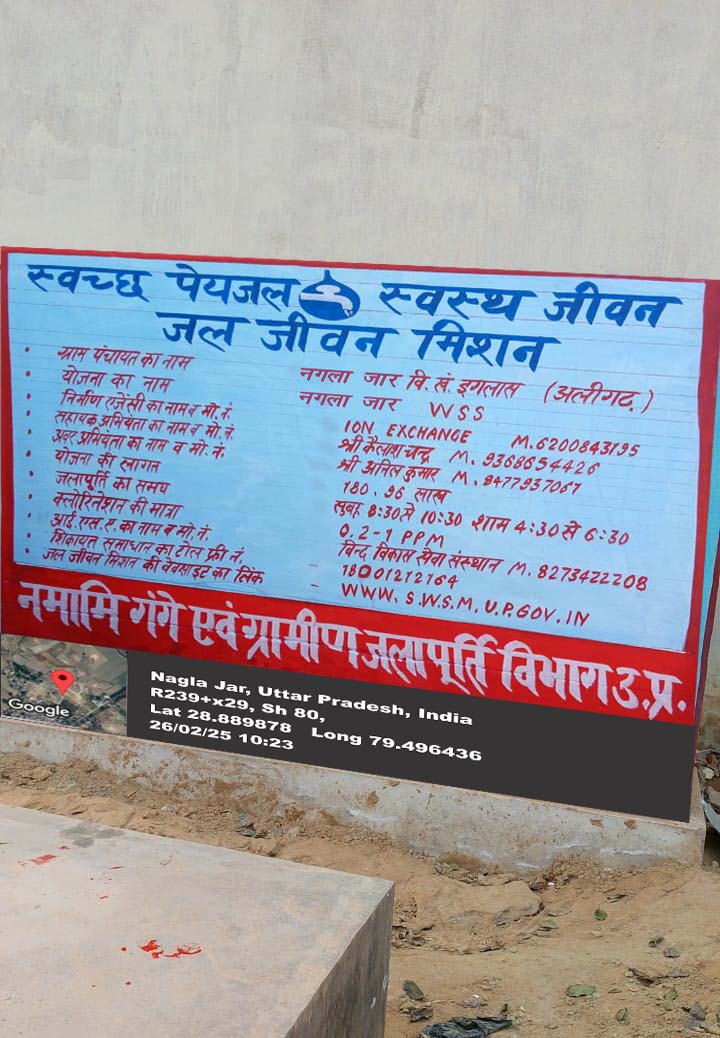 स्वच्छ पेयजल स्वस्थ जीवन
जल जीवन मिशन
• ग्राम पंचायत का नाम नगला जार वि.खं. इगलास (अलीगढ़)
• योजना का नाम नगला जार WSS
• निर्माण एजेंसी का नाम व मो.नं. ION EXCHANGE M.6200843195
• सहायक अभियंता का नाम व मो.नं. श्री कैलाश चन्द्र M.9368654426
• अवर अभियंता का नाम व मो.नं. श्री अनिल कुमार M.8477937067
• योजना की लागत 180.96 लाख
• जलापूर्ति का समय सुबह 8:30 से 10:30 शाम 4:30 से 6:30
• क्लोरिनेशन की मात्रा 0.2-1 PPM
• आई.एस.ए. का नाम व मो.नं. बिन्द विकास सेवा संस्थान M.8273422208
• शिकायत समाधान का टोल फ्री नं. - 18001212164
• जल जीवन मिशन की वेबसाइट का लिंक - WWW.S.W.S.M.U.P.GOV.IN
नमामि गंगे एवं ग्रामीण जलापूर्ति विभाग उ.प्र.
Google
Nagla Jar, Uttar Pradesh, India
R239+x29, Sh 80,
Lat 28.889878 Long 79.496436
26/02/25 10:23